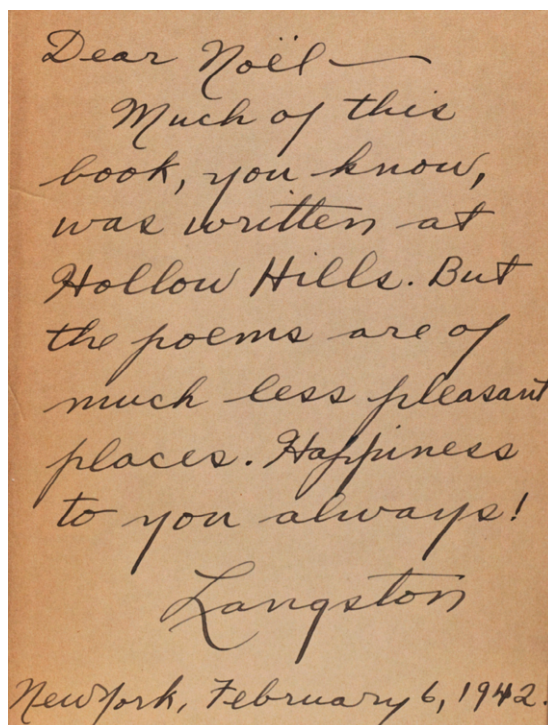 Dear Noël—
Much of this
book, you know,
was written at
Hollow Hills. But
the poems are of
much less pleasant
places. Happiness
to you always!
Langston
New York, February 6, 1942.